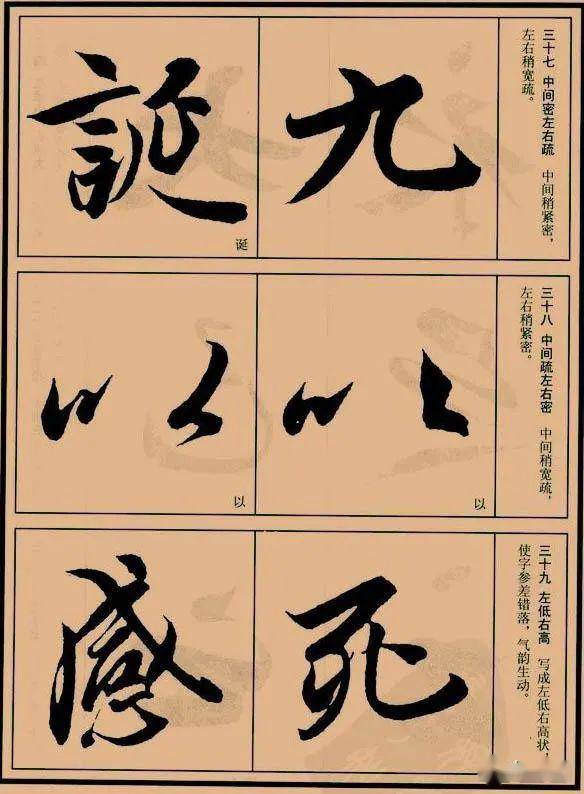 三十七 中间密左右疏 中间稍紧密，
左右稍宽疏。
九
誕
诞
三十八 中间疏左右密 中间稍宽疏，
左右稍紧密。
以
以
以
以
三十九 左低右高 写成左低右高状，
使字参差错落，气韵生动。
死
感